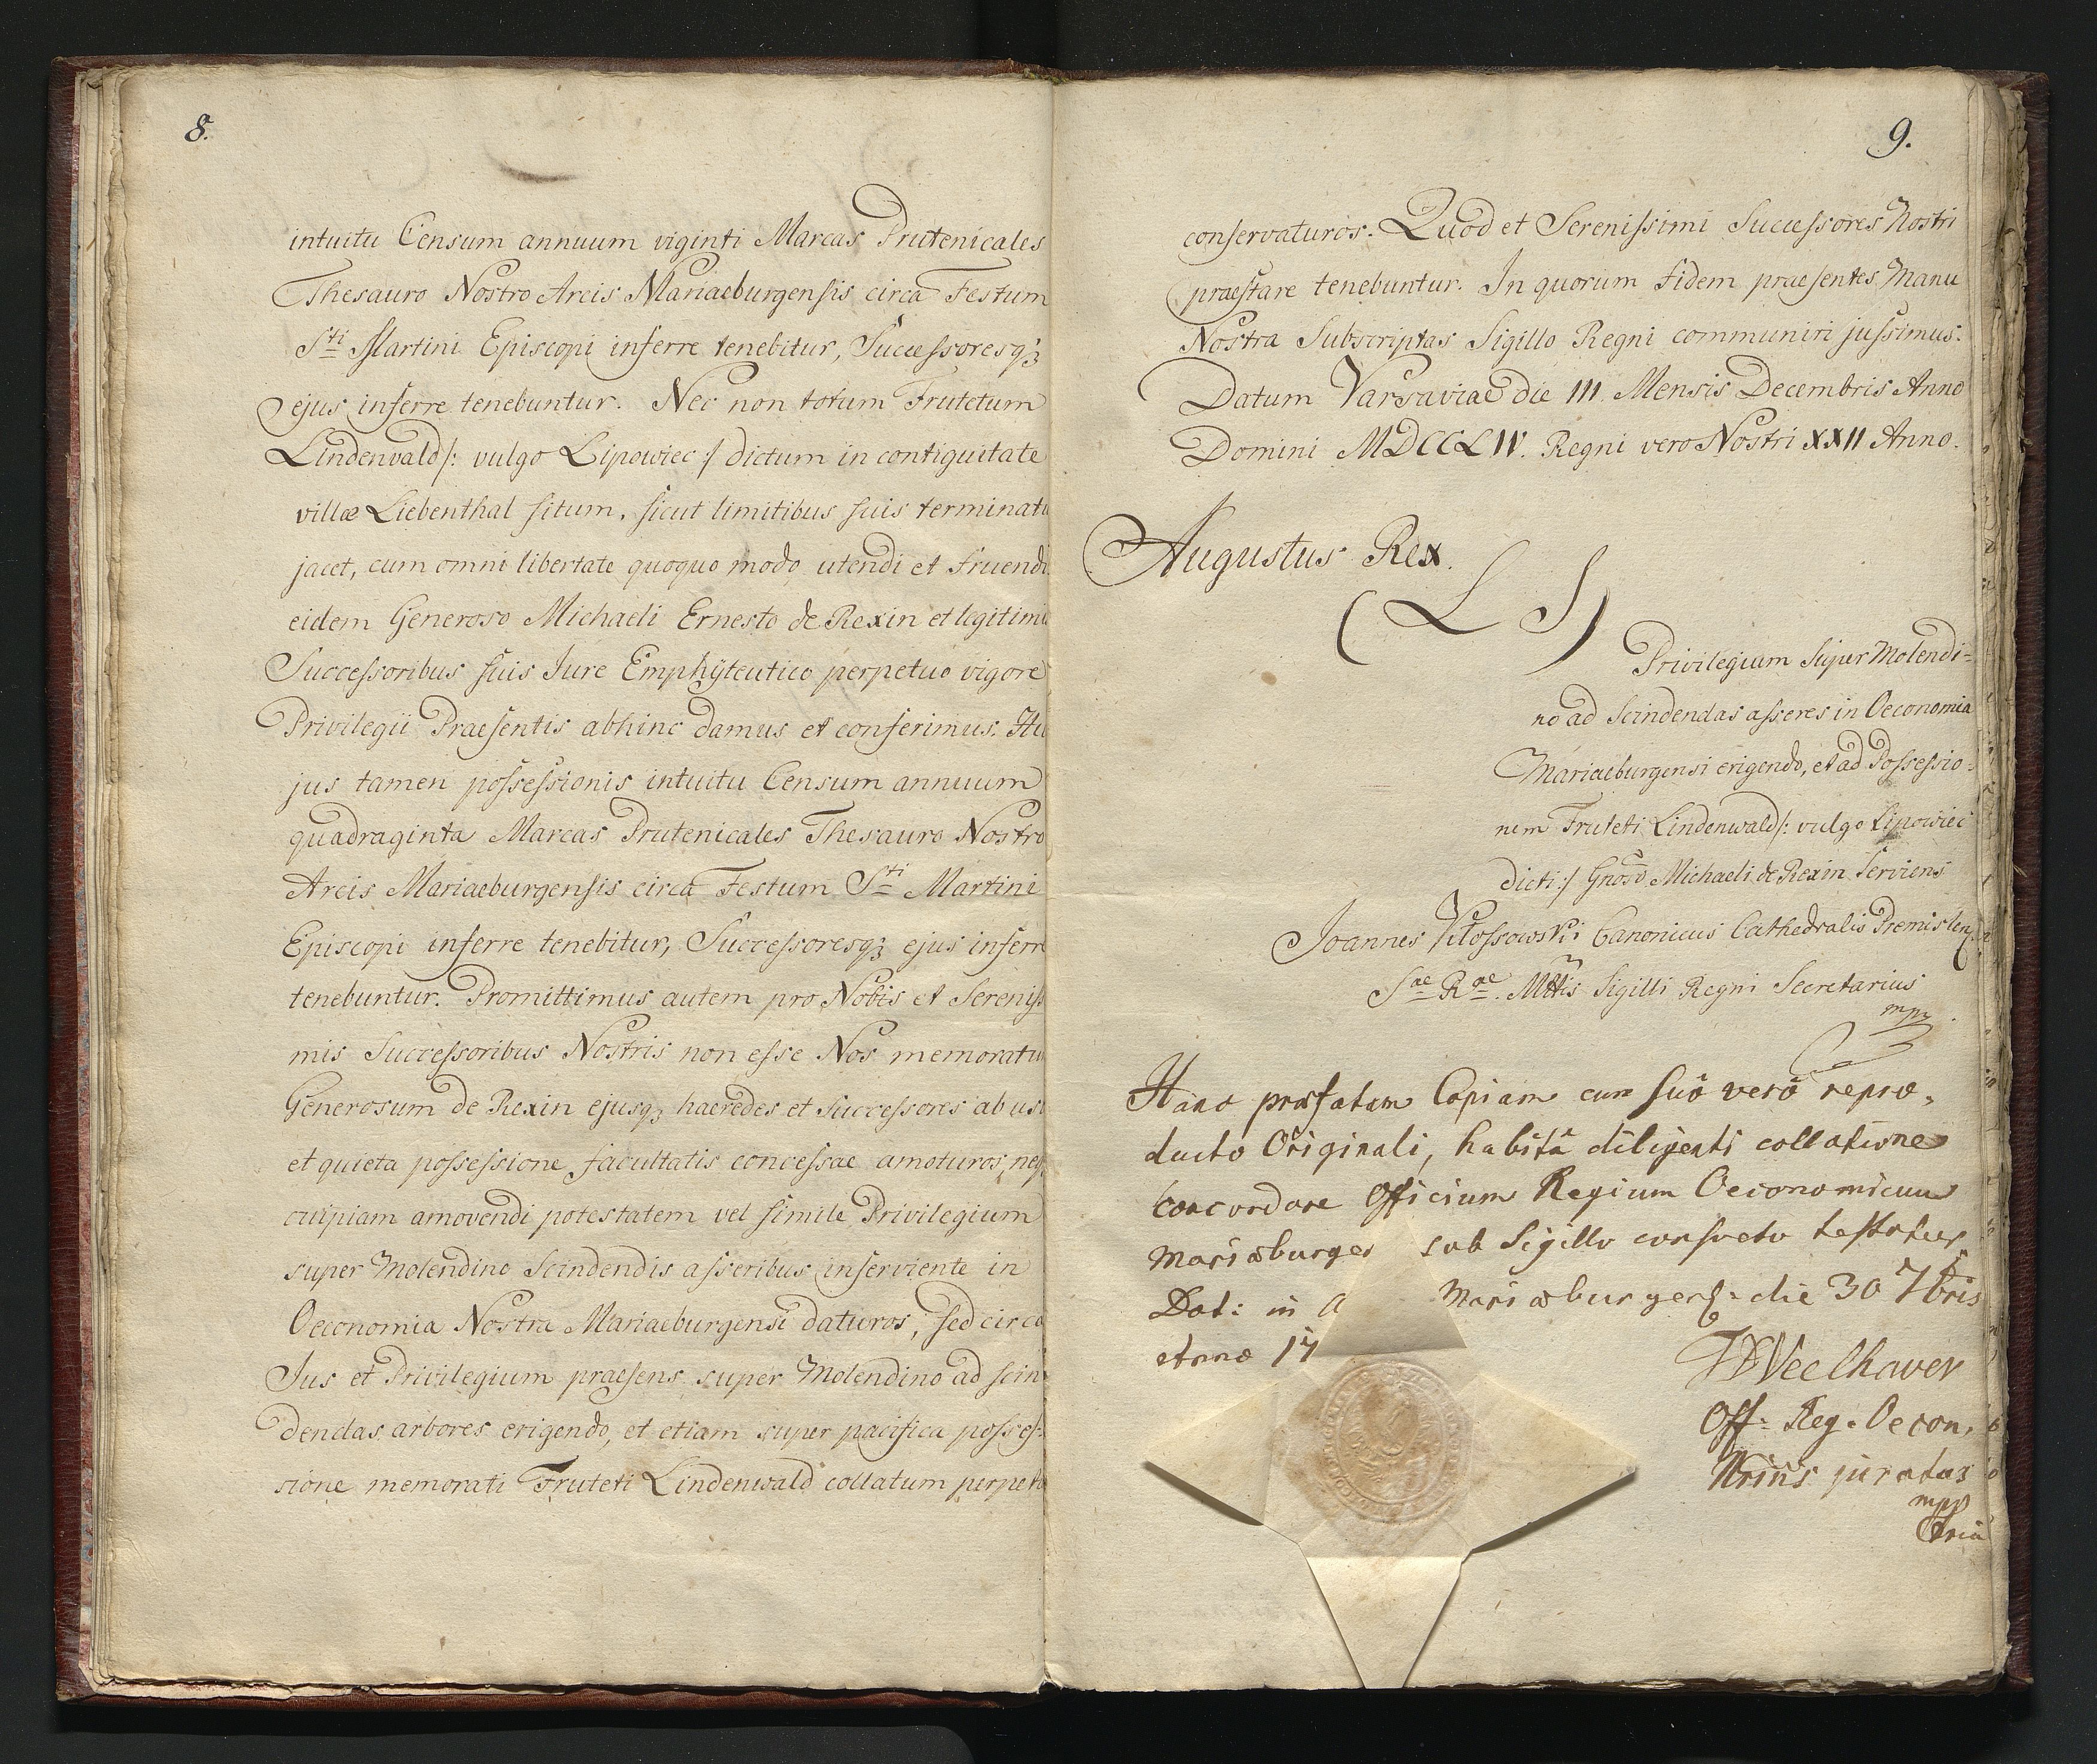 8.
intuitu Censum annuum viginti Marcas Prutenicales
Thesauro Nostro Arcis Mariaeburgensis circa Festum
Sti Martini Episcopi inferre tenebitur, Successoresqȝ
ejus inferre tenebuntur. Nec non totum Frutetum
Lindenvald/: vulgo Lipowiec :/ dictum in contiguitate
villæ Liebenthal situm, sicut limitibus suis terminatu
jacet, cum omni libertate quoquo modo utendi et fruendi
eidem Generoso Michaeli Ernesto de Rexin et legitimi
Successoribus suis Jure Emphÿteutico perpetuo vigore
Privilegii Praesentis abhinc damus et conferimus. Hu
jus tamen possessionis intuitu Censum annuum
quadraginta Marcas Prutenicales Thesauro Nostro
Arcis Mariaeburgensis circa Festum Sti Martini
Episcopi inferre tenebitur, Successoresqȝ ejus inferre
tenebuntur. Promittimus autem pro Nobis et Sereniss
mis Successoribus Nostris non esse Nos memoratu
Generosum de Rexin ejusqȝ haeredes et Successores ab usu
et quieta possessione facultatis concessae amoturos, neq
cuipiam amovendi potestatem vel simile Privilegium
super Molendino Scindendis asseribus inserviente in
Oeconomia Nostra Mariaeburgensi daturos, sed circa
Jus et Privilegium praesens super Molendino ad scin
dendas arbores erigendo, et etiam super pacifica posses-
sione memorati Fruteti Lindenwald collatum perpetu
9.
conservaturos. Quod et Serenissimi Successores Nostri
praestare tenebuntur. In quorum fidem praesentes Manu
Nostra Subscriptas Sigillo Regni communiri jussimus.
Datum Varsaviae die III. Mensis Decembris Anno
Domini MDCCLIV. Regni vero Nostri XXII Anno.
Augustus Rex.
(L S)
Privilegium super Molendi-
no ad Scindendas asseres in Oeconomia
Mariaeburgensi erigendo, et ad Possessio-
nem Fruteti Lindenwald/: vulgo Lipowiec
dicti :/ Gnoso Michaeli de Rexin Serviens
Joannes Kłossowski Canonicus Cathedralis Premislen
Sae Rae Mttis Sigilli Regni Secretarius
mpȝ
Hanc præfatam Copiam cum suo verô repro-
ducto Originali, habitâ diligenti collatione
concordare Officium Regium Oeconomicum
Mariæburgen sub Sigillo consveto testatur
Dat: in A Mariæburgens: die 30 7bris
Anno 17
Off: Reg. Oecon.
juratus
mpp